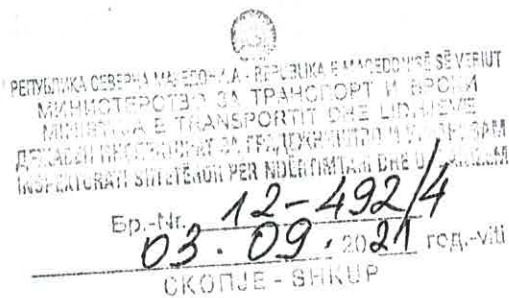 РЕПУБЛИКА СЕВЕРНА МАКЕДОНИЈА - REPUBLIKA E MAQEDONISË SË VERIUT
МИНИСТЕРСТВО ЗА ТРАНСПОРТ И ВРСКИ
MINISTRIA E TRANSPORTIT DHE LIDHJEVE
ДРЖАВЕН ИНСПЕКТОРАТ ЗА ГРАДЕЖНИШТВО И УРБАНИЗАМ
INSPEKTORATI SHTETËROR PËR NDËRTIMTARI DHE URBANIZËM
Бр.-Nr. 12-492/4
03.09.2021 год.-viti
СКОПЈЕ - SHKUP